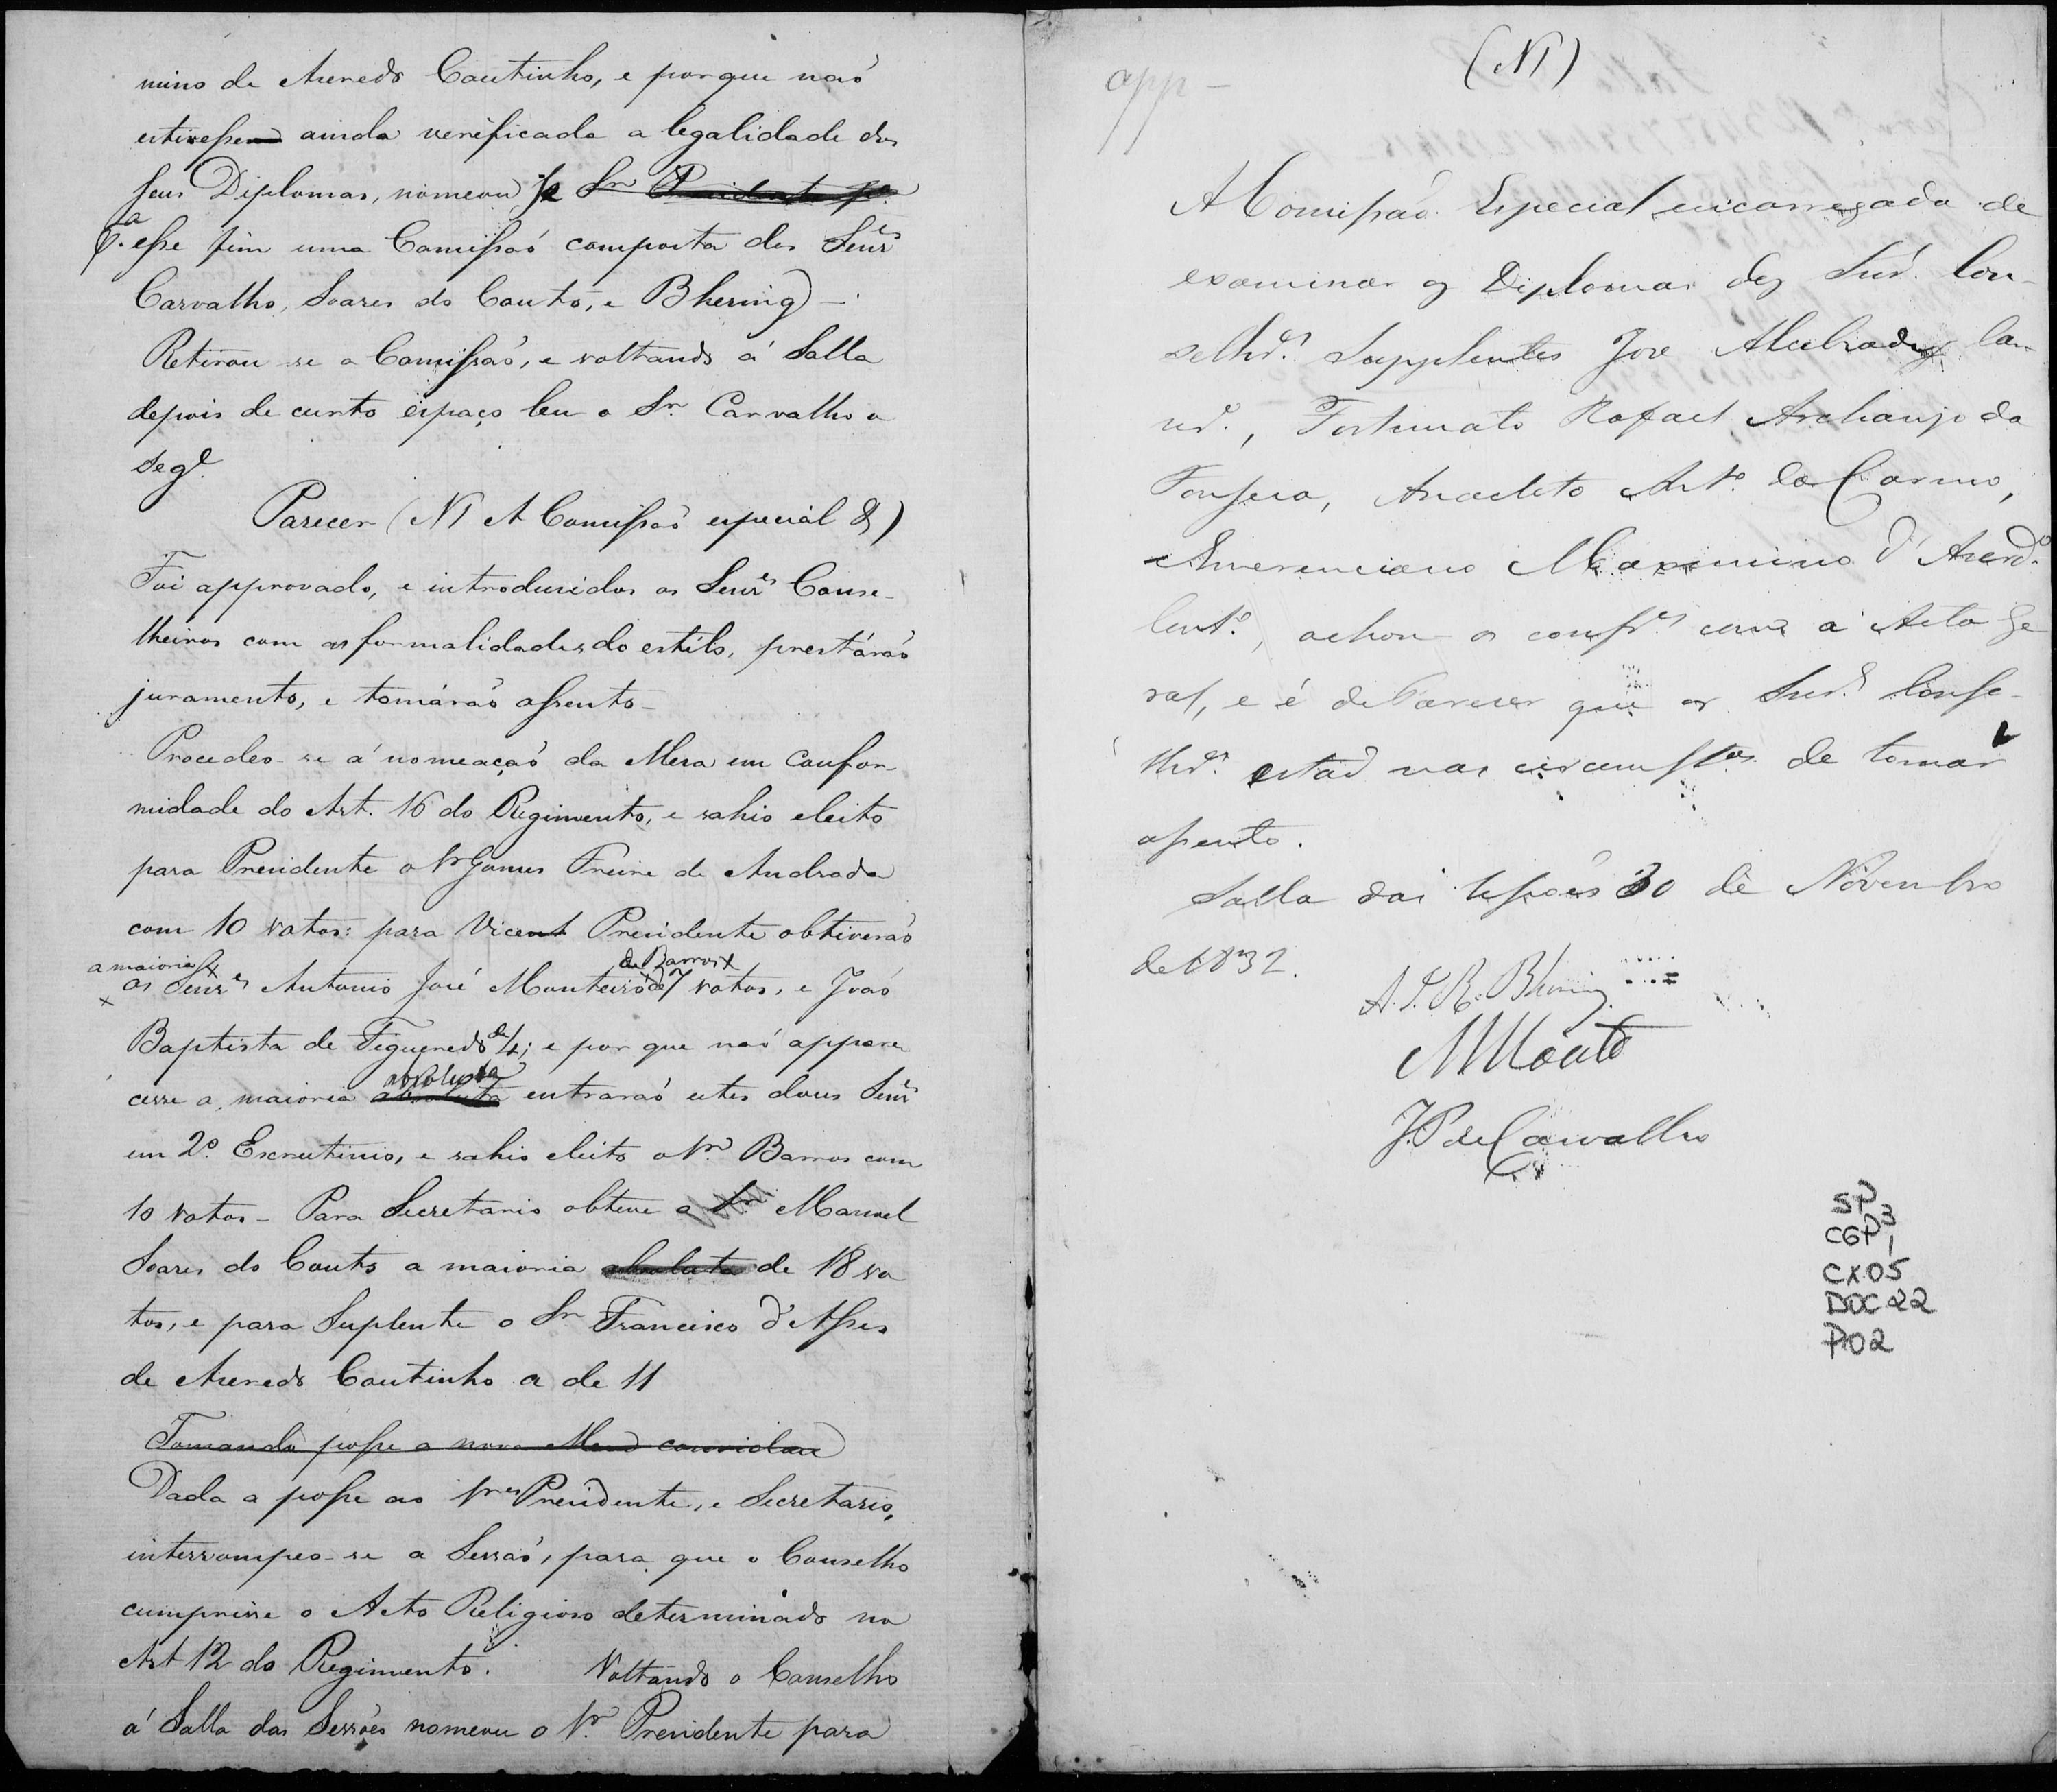 mino de Aseredo Coutinho, e porque naõ
estivesse ainda verificada a legalidade dos
seus Diplomas, nomeou se o Sr. Presidente pa.
pa. esse fim uma Comissaõ composta dos Senres
Carvalho, Soares do Couto, e Bhering) —
Retirou-se a Comissaõ, e voltando á Salla
depois de curto espaço leu o Sr. Carvalho o
sege.
Parecer (N1 A Comissaõ especial &)
Foi approvado, e introdusidos os Senres Conse-
lheiros com as formalidades do estilo, prestáraõ
juramento, e tomáraõ assento —
Procedeo-se á nomeaçaõ da Mesa em confor-
midade do Art. 16 do Regimento, e sahio eleito
para Presidente o Sr Gomes Freire de Andrada
com 10 votos: para Vice Presidente obtiveraõ
a maioria
de Barros
os Senres Antonio José Monteiro de 7 votos, e Joaõ
Baptista de Figueredo de 4; e por que naõ appare-
absoluta
cesse a maioria absoluta entraraõ estes dous Senrs
em 2º. Escrutinio, e sahio eleito o Sr. Barros com
10 votos — Para Secretario obteve o Sr Manoel
Soares do Couto a maioria absoluta de 18 vo
tos, e para Suplente o Sr Francisco d'Asses
de Aseredo Coutinho a de 11
Tomando posse a nova Mesa convidou
Dada a posse aos Sres Presidente, e Secretario,
interrompeo-se a Sessaõ, para que o Conselho
cumprisse o Acto Religioso determinado no
Art 12 do Regimento. Voltando o Conselho
á Salla das Sessões nomeou o Sr. Presidente para
app —
(N1)
A Comissaõ Especial encarregada de
examinar os Diplomas dos Snrs. Con-
selhros. Supplentes Jose Alcebiades Car
nro., Fortunato Rafael Archanjo da
Fonseca, Anacleto Anto. do Carmo,
Emerenciano Maximino d'Azerdo.
Couto., achou os confes. com a Acta Ge
ral, e é de Parecer que os Snrs. Conse-
lhros. estaõ nas circumstas. de tomar
assento.
Salla das Sessoẽs 30 de Novembro
de 1832.
A. J. R. Bhering
M M Couto
J. P. de Carvalho
SP
CGP3 1
CX.05
DOC 22
P.02